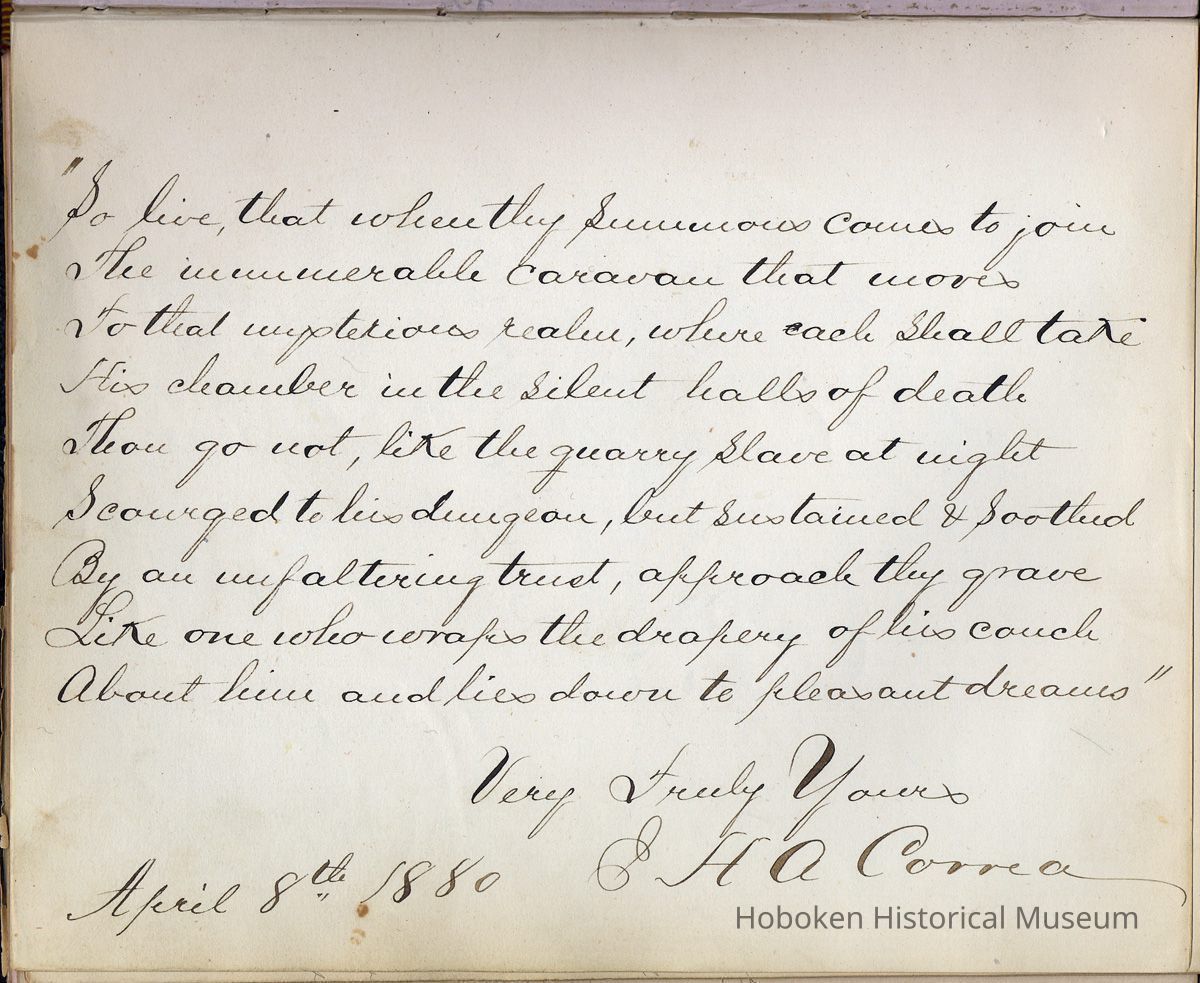 "So live, that when thy summons comes to join
The innumerable caravan that moves
To that mysterious realm, where each shall take
His chamber in the silent halls of death
Thou go not, like the quarry slave at night
Scourged to his dungeon, but sustained & soothed
By an unfaltering trust, approach thy grave
Like one who wraps the drapery of his couch
About him and lies down to pleasant dreams"
Very Truly Yours
E H A Correa
April 8th 1880
Hoboken Historical Museum